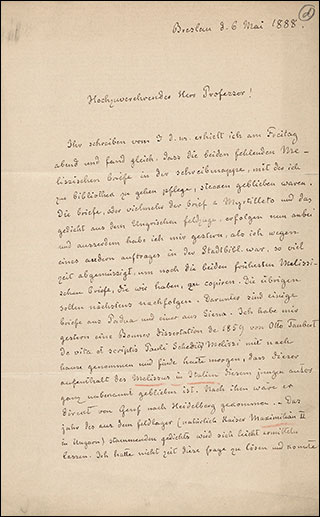 d
Breslau d. 6 Mai 1888.
Hochzuverehrender Herr Professor!
Ihr schreiben vom 3 d. m. erhielt ich am Freitag
abend und fand gleich, dass die beiden fehlenden Me-
lissischen briefe in der schreibmappe, mit der ich
zur bibliothek zu gehen pflege, stecken geblieben waren.
Die briefe, oder vielmehr der brief a Myrtilleto und das
gedicht aus dem Ungrischen feldzuge, erfolgen nun anbei
und ausserdem habe ich mir gestern, als ich wegen
eines andern auftrages in der Stadtbibl. war, so viel
zeit abgemüssigt, um noch die beiden frühesten Melissi-
schen briefe, die wir haben, zu copiren. Die übrigen
sollen nächstens nachfolgen. Darunter sind einige
briefe aus Padua und einer aus Siena. Ich habe mir
gestern eine Bonner dissertation de 1859 von Otto Taubert
De vita et scriptis Pauli Schedii Melissi mit nach
hause genommen und finde heute morgen, dass dieser
aufenthalt des Melissus in Italien diesem jungen autor
ganz unbekannt geblieben ist. Nach ihm wäre er
direct von Genf nach Heidelberg gekommen. Das
jahr des aus dem feldlager (natürlich Kaiser Maximilian II
in Ungarn) stammenden gedichts wird sich leicht ermitteln
lassen. Ich hatte nicht zeit diese frage zu lösen und konnte